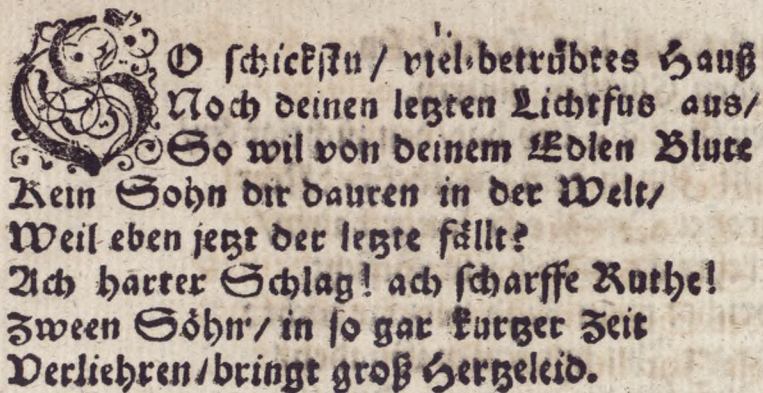 SO ſchickſtu / viel-betrübtes Hauß
Noch deinen letzten Lichtfus aus /
So wil von deinem Edlen Blute
Kein Sohn dir dauren in der Welt /
Weil eben jetzt der letzte fällt?
Ach harter Schlag! ach ſcharffe Ruthe!
Zween Söhn' / in ſo gar kurtzer Zeit
Verliehren / bringt groß Hertzeleid.